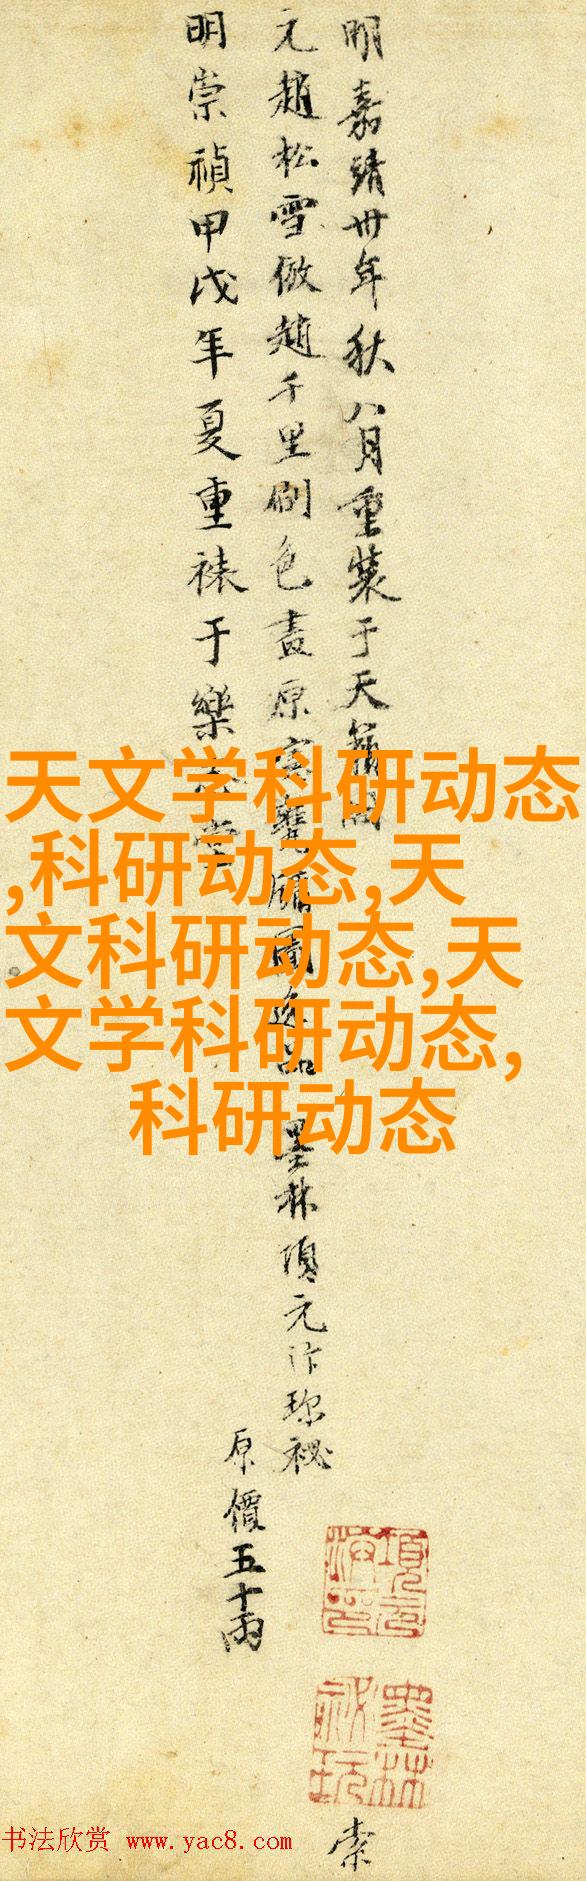 明嘉靖卅年秋八月重装于天籟閣
元趙松雪倣趙千里刷色畫原
墨林項元汴珍秘
明崇禎甲戊年夏重裱于樂
原價五十兩
天文学科研动态
,科研动态,天
文科研动态,天
文学科研动态,
科研动态
項元汴印
墨林
书法欣赏 www.yac8.com